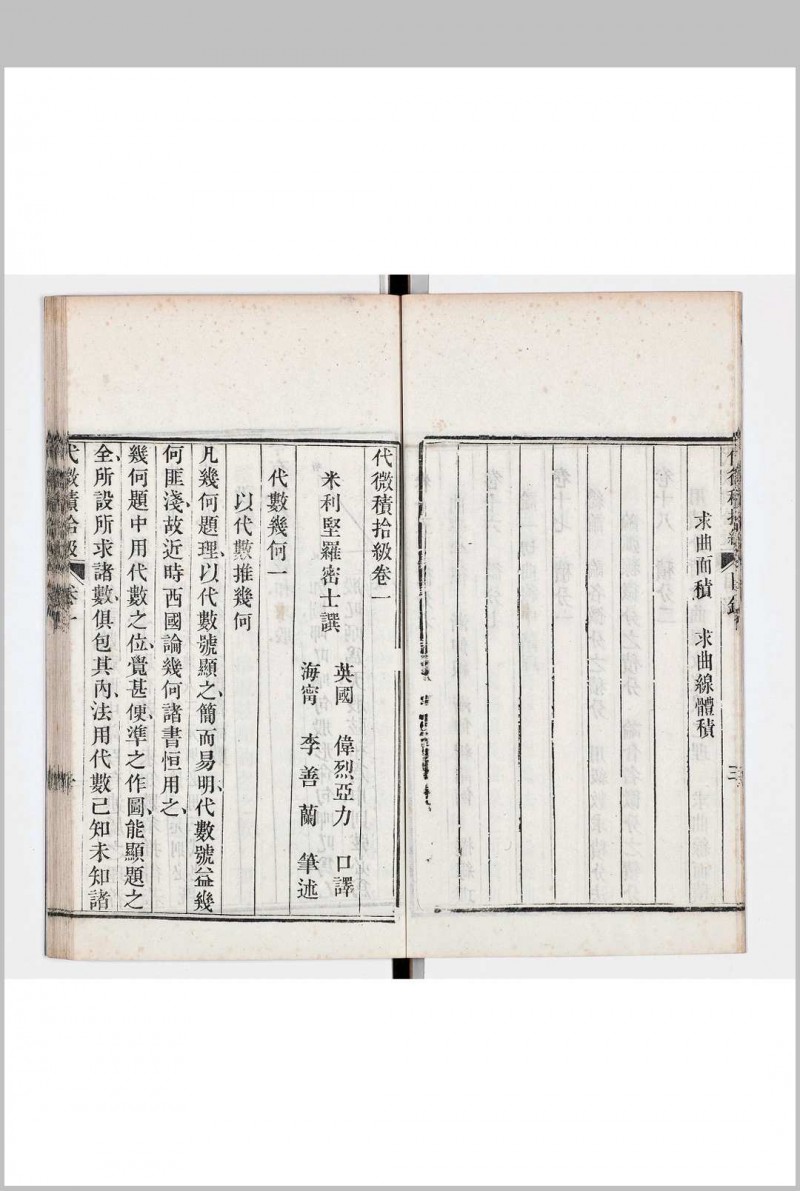 求曲面積　求曲線體積
三
代微積拾級卷一
米利堅羅密士譔
英國　偉烈亞力　口譯
海甯　李善蘭　筆述
代數幾何一
以代數推幾何
凡幾何題理、以代數號顯之、簡而易明、代數號益幾
何匪淺、故近時西國論幾何諸書恒用之、
幾何題中用代數之位、覺甚便、準之作圖、能顯題之
全、所設所求諸數、俱包其內、法用代數已知未知諸
代微積拾級　卷一